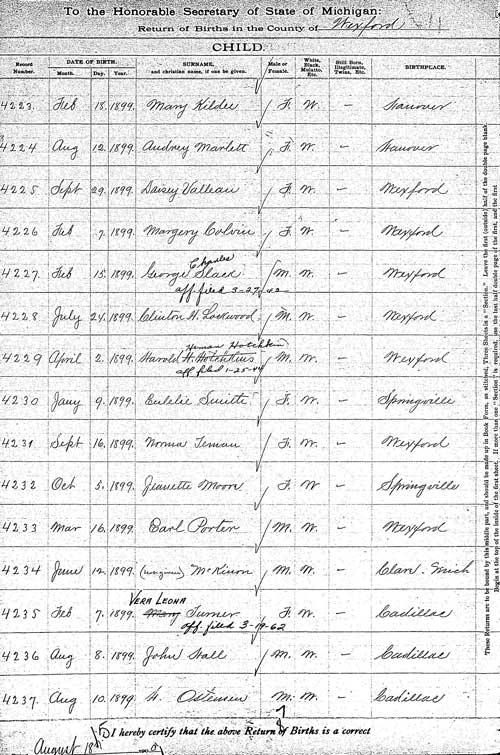 To the Honorable Secretary of State of Michigan:
Return of Births in the County of Wexford
CHILD.
Record Number. DATE OF BIRTH. Month. Day. Year. SURNAME, and christian name, if one be given. Male or Female. White, Black, Mulatto, Etc. Still Born, Illegitimate, Twins, Etc. BIRTHPLACE.
4223. Feb 18. 1899. Mary Kildee F. W. – Hanover
4224 Aug 12. 1899. Audrey Marlett F. W. – Hanover
4225 Sept 29. 1899. Daisey Valleau F. W. – Wexford
4226 Feb 7. 1899. Margery Colvin F. W. – Wexford
Charles
4227. Feb 15. 1899. George Slack M. W. – Wexford
aff. filed 3-27-42
4228 July 24. 1899. Clinton H. Lockwood M. W. – Wexford
Heman Hotchkin
4229 April 2. 1899. Harold H. Hotchkiss M. W. – Wexford
aff filed 1-25-44
4230 Jany 9. 1899. Eulelie Smith F. W. – Springville
4231 Sept 16. 1899. Norma Teman F. W. – Wexford
4232 Oct 5. 1899. Jeanette Moore F. W – Springville
4233 Mar 16. 1899. Earl Porter M. W. – Wexford
4234 June 12. 1899. McKinon M. W. – Clam. Mich
VERA LEONA
4235 Feb 7. 1899. Mary Turner F. W. – Cadillac
aff. filed 3-19-62
4236 Aug 8. 1899. John Hall M. W. – Cadillac
4237. Aug 10. 1899 W. Ostensen M. W. – Cadillac
I hereby certify that the above Return of Births is a correct
August 18
These Returns are to be bound by this middle part, and should be made up in Book Form, as stitched, Three Sheets in a "Section." Leave the first (outside) half of the double page blank.
Begin at the top of the inside of the first sheet. If more than one "Section" is required, use the last half double page of the first, and the first